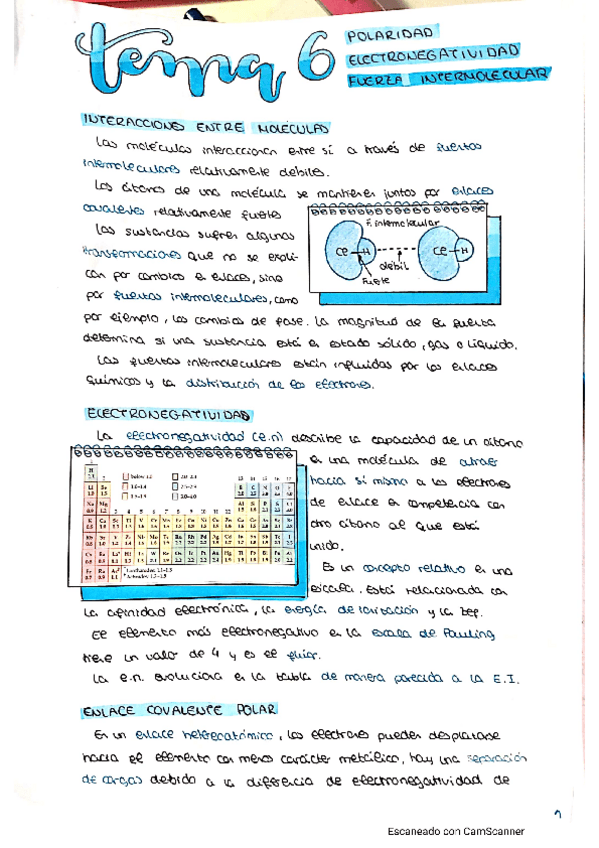 tema 6
POLARIDAD
ELECTRONEGATIVIDAD
FUERZA INTERMOLECULAR
INTERACCIONES ENTRE MOLÉCULAS
Las moléculas interaccionan entre sí a través de fuerzas
intermoleculares relativamente débiles.
Los átomos de una molécula se mantienen juntos por enlaces
covalentes relativamente fuertes
Las sustancias sufren algunas
transformaciones que no se expli-
can por cambios en enlaces, sino
por fuerzas intermoleculares, como
F. intermolecular
Ce
H
Ce
H
débil
Fuerte
por ejemplo, los cambios de fase. La magnitud de la fuerza
determina si una sustancia está en estado sólido, gas o líquido.
Las fuerzas intermoleculares están influidas por los enlaces
químicos y la distribución de los electrones.
ELECTRONEGATIVIDAD
La electronegatividad (e.n) describe la capacidad de un átomo
en una molécula de atraer
hacia sí mismo a los electrones
de enlace en competencia con
otro átomo al que está
unido.
Es un concepto relativo en una
escala. Está relacionada con
la afinidad electrónica, la energía de ionización y la Zef.
El elemento más electronegativo en la escala de Pauling
tiene un valor de 4 y es el flúor.
La e.n. evoluciona en la tabla de manera parecida a la E.I.
ENLACE COVALENTE POLAR
En un enlace heteroatómico, los electrones pueden desplazarse
hacia el elemento con menos carácter metálico, hay una separación
de cargas debido a la diferencia de electronegatividad de
Escaneado con CamScanner